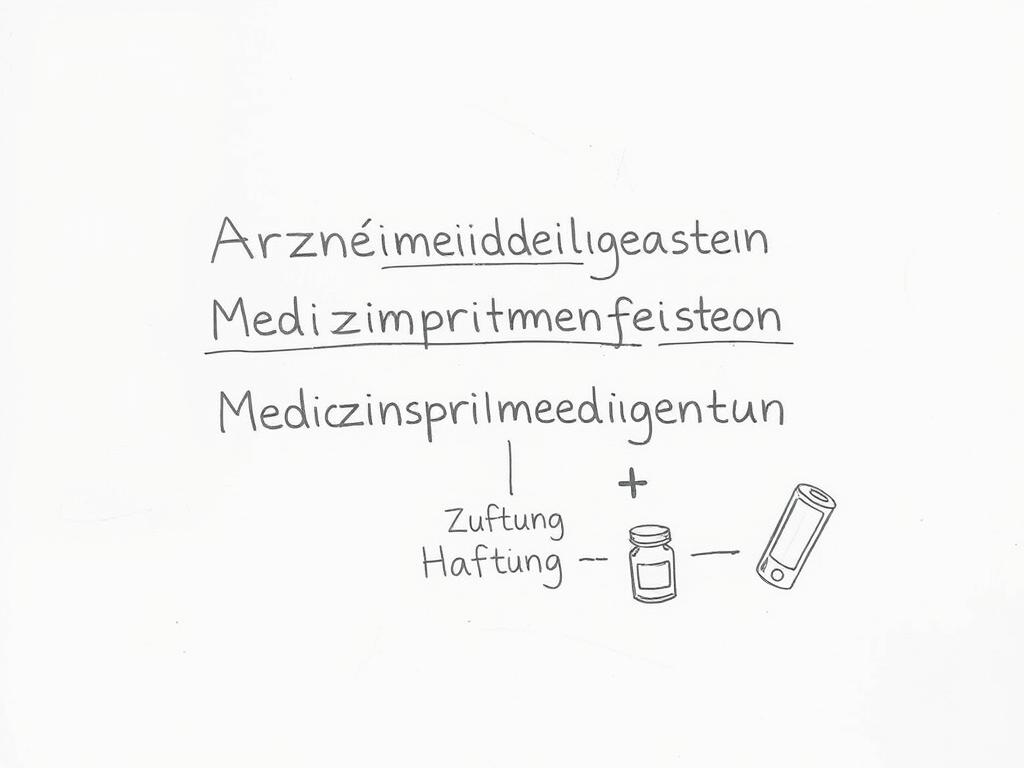 Arznéimeiiddeilıgeasteın
Medizimpritmmenfeisteon
Mediczinsprilmeediigentun
+
Zuftung
Haftung